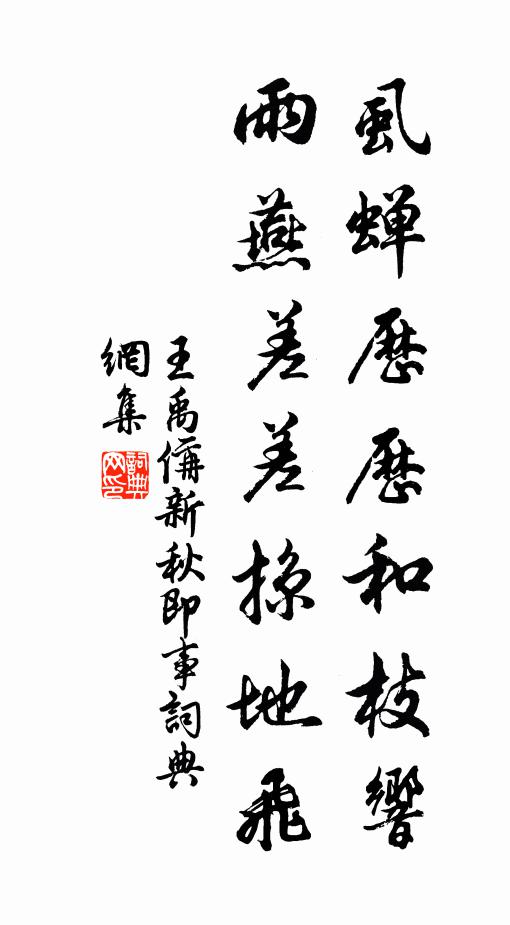 虱蝉歷歷和枝響
雨燕差差掠地飛
王禹偁新秋即事詞典
網集
詞典網印